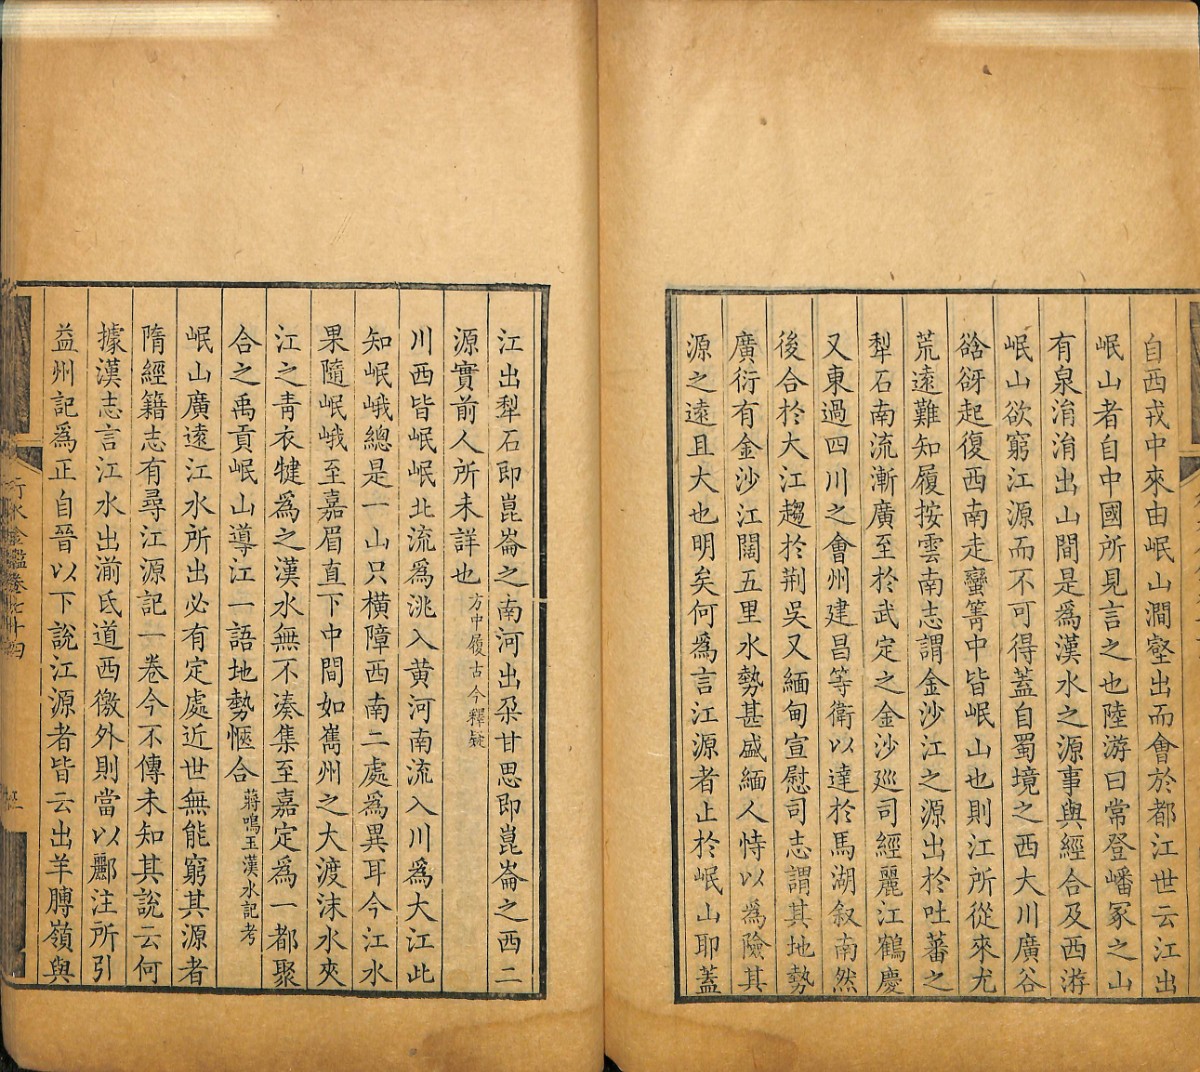 自西戎中來由岷山澗壑出而會於都江世云江出
岷山者自中國所見言之也陸游曰常登嶓冢之山
有泉涓涓出山間是爲漢水之源事與經合及西游
岷山欲窮江源而不可得蓋自蜀境之西大川廣谷
谽谺起復西南走蠻箐中皆岷山也則江所從來尤
荒遠難知履按雲南志謂金沙江之源出於吐蕃之
犁石南流漸廣至於武定之金沙巡司經麗江鶴慶
又東過四川之會州建昌等衛以達於馬湖叙南然
後合於大江趨於荆吳又緬甸宣慰司志謂其地勢
廣衍有金沙江闊五里水勢甚盛緬人恃以為險其
源之遠且大也明矣何爲言江源者止於岷山耶蓋
江出犁石即崑崙之南河出朶甘思即崑崙之西二
源實前人所未詳也方中履古今釋疑
川西皆岷岷北流爲洮入黄河南流入川爲大江此
知岷峨總是一山只橫障西南二處爲異耳今江水
果隨岷峨至嘉眉直下中間如嶲州之大渡沬水夾
江之青衣犍爲之漢水無不凑集至嘉定爲一都聚
合之禹貢岷山導江一語地勢愜合蔣鳴玉漢水記考
岷山廣遠江水所出必有定處近世無能窮其源者
隋經籍志有尋江源記一卷今不傳未知其說云何
據漢志言江水出湔氐道西徼外則當以酈注所引
益州記爲正自晉以下說江源者皆云出羊膊嶺與
行水金鑑卷七十四